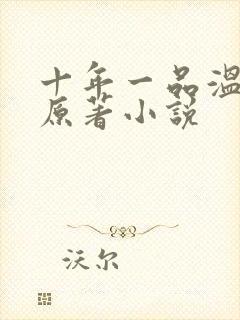 十年一品温
原著小说
沃尔